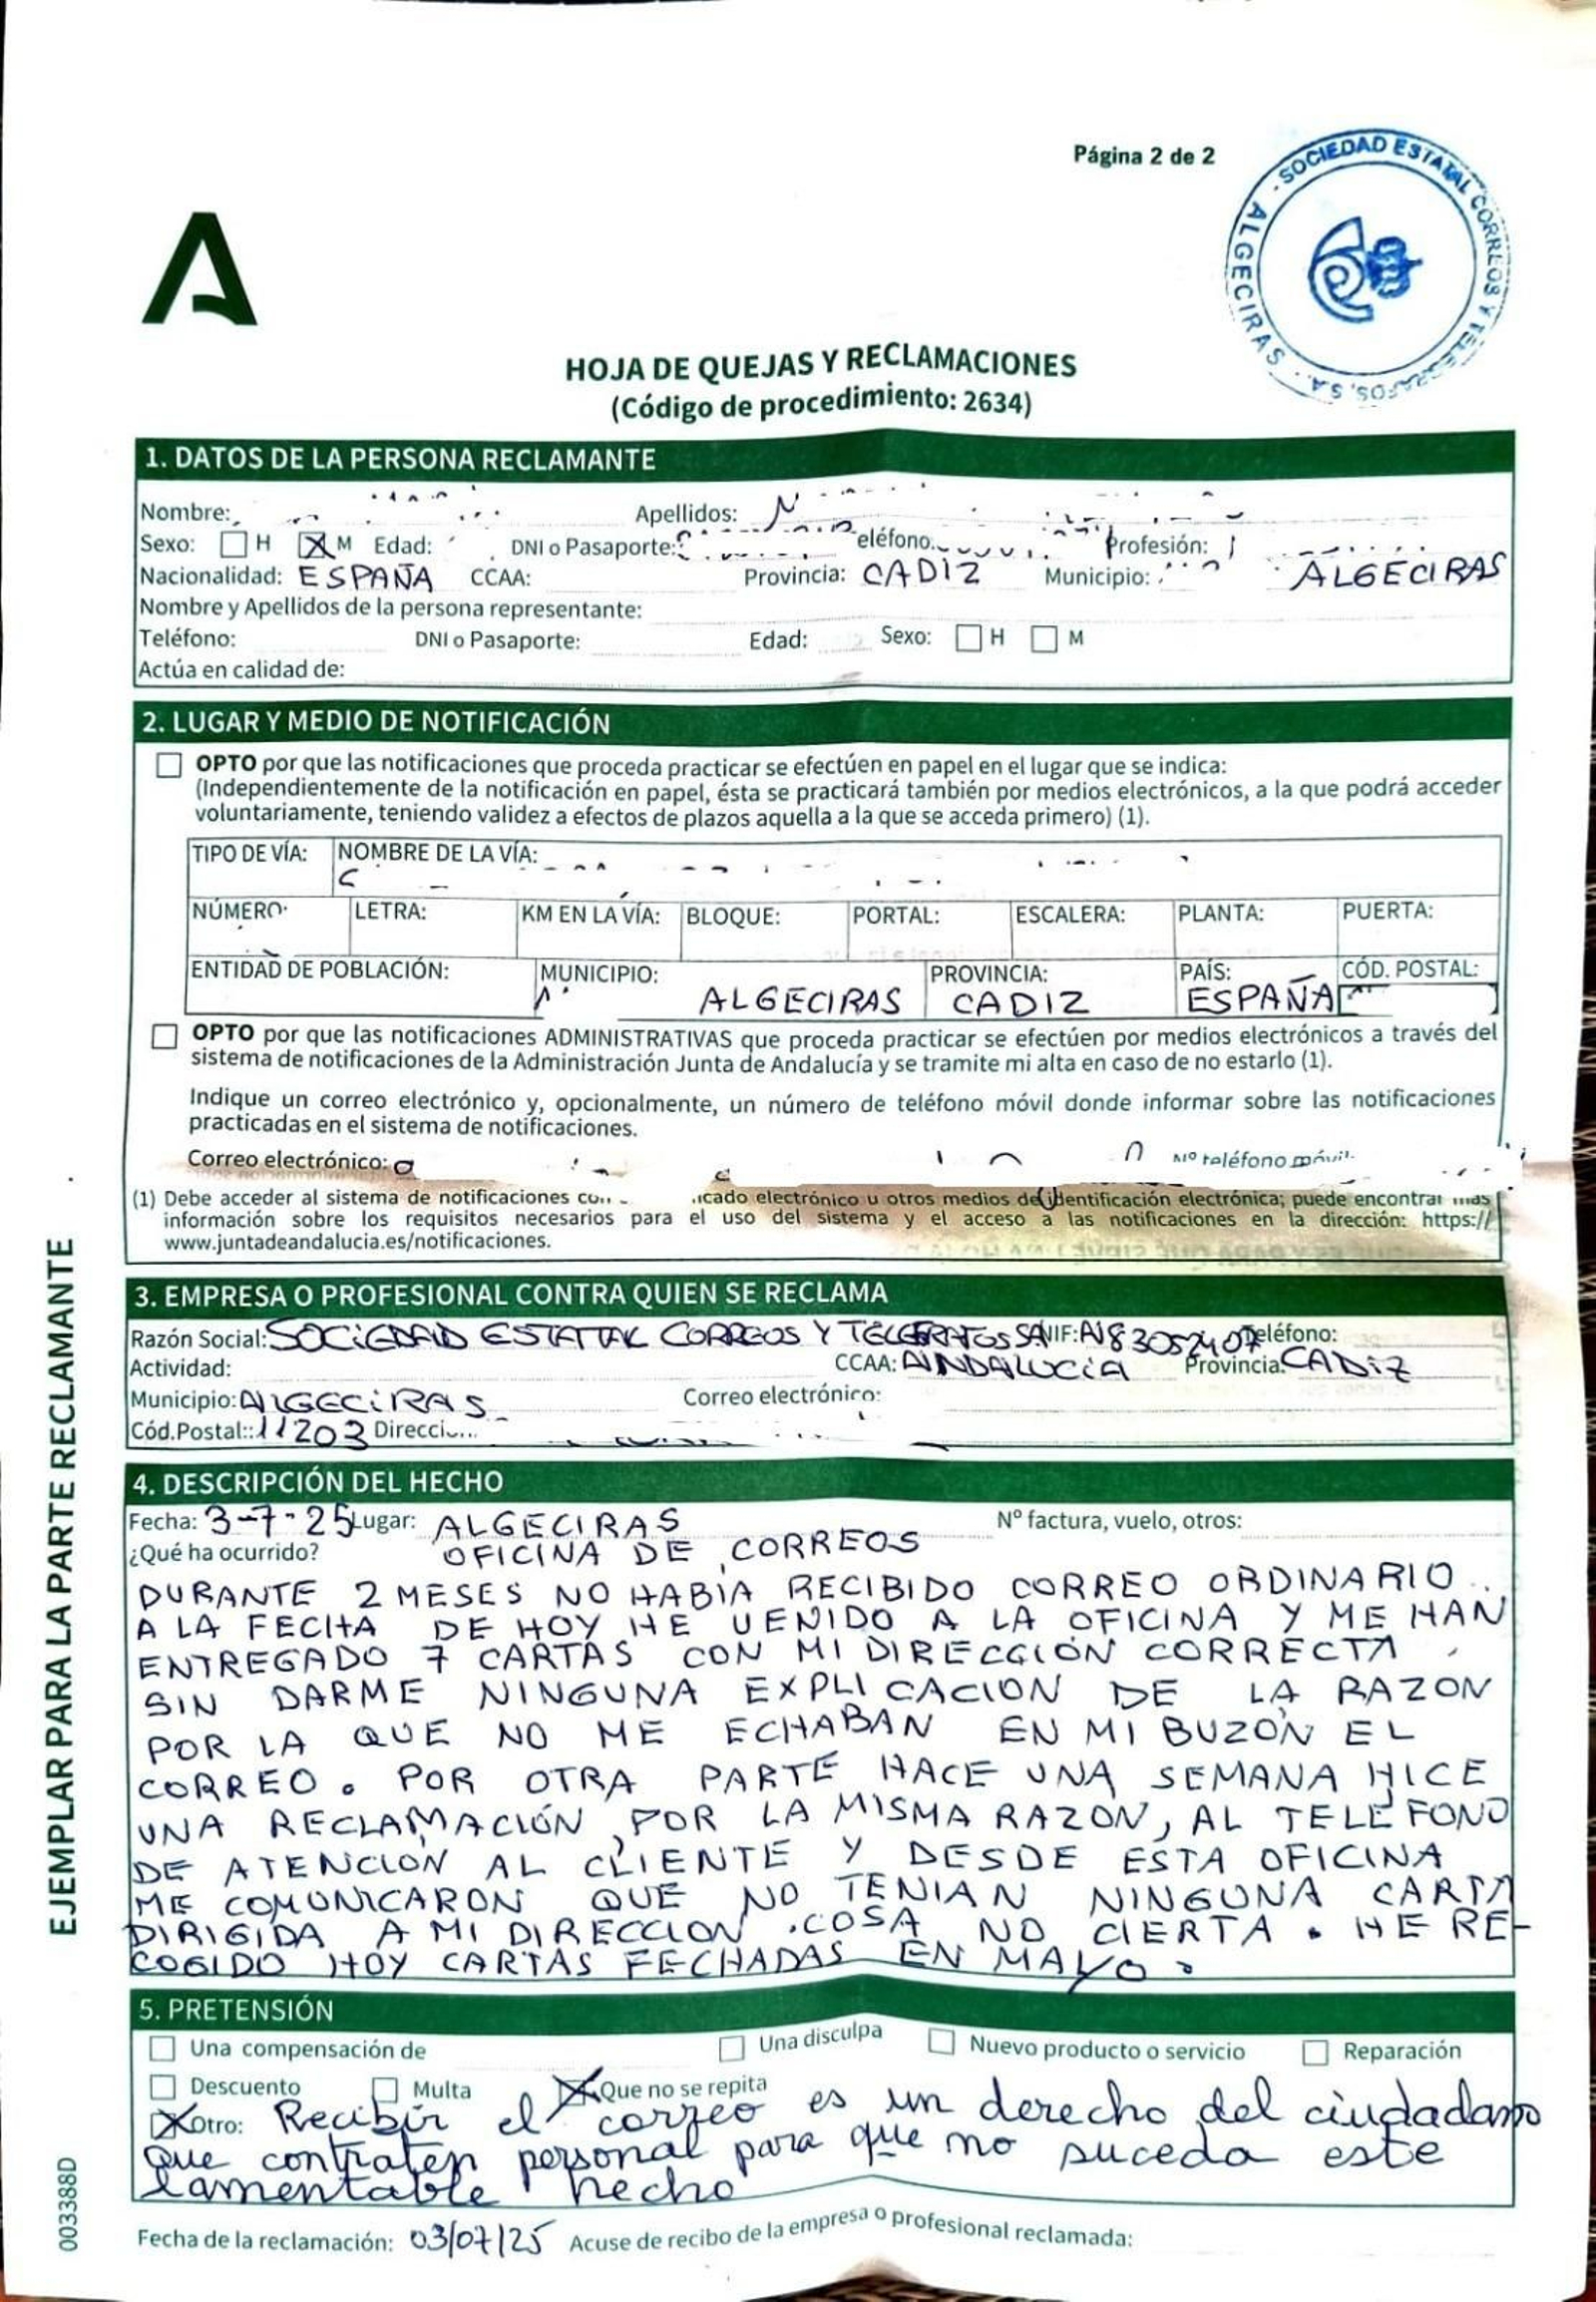 Página 2 de 2
SOCIEDAD ESTATAL CORREOS Y TELEGRAFOS, S.A. · ALGECIRAS ·
HOJA DE QUEJAS Y RECLAMACIONES
(Código de procedimiento: 2634)
1. DATOS DE LA PERSONA RECLAMANTE
Nombre: Apellidos:
Sexo: H X M Edad: DNI o Pasaporte: eléfono Profesión:
Nacionalidad: ESPAÑA CCAA: Provincia: CADIZ Municipio: ALGECIRAS
Nombre y Apellidos de la persona representante:
Teléfono: DNI o Pasaporte: Edad: Sexo: H M
Actúa en calidad de:
2. LUGAR Y MEDIO DE NOTIFICACIÓN
OPTO por que las notificaciones que proceda practicar se efectúen en papel en el lugar que se indica:
(Independientemente de la notificación en papel, ésta se practicará también por medios electrónicos, a la que podrá acceder
voluntariamente, teniendo validez a efectos de plazos aquella a la que se acceda primero) (1).
TIPO DE VÍA: NOMBRE DE LA VÍA:
NÚMERO LETRA: KM EN LA VÍA: BLOQUE: PORTAL: ESCALERA: PLANTA: PUERTA:
ENTIDAD DE POBLACIÓN: MUNICIPIO: PROVINCIA: PAÍS: CÓD. POSTAL:
ALGECIRAS CADIZ ESPAÑA
OPTO por que las notificaciones ADMINISTRATIVAS que proceda practicar se efectúen por medios electrónicos a través del
sistema de notificaciones de la Administración Junta de Andalucía y se tramite mi alta en caso de no estarlo (1).
Indique un correo electrónico y, opcionalmente, un número de teléfono móvil donde informar sobre las notificaciones
practicadas en el sistema de notificaciones.
Correo electrónico: Nº teléfono móvil:
(1) Debe acceder al sistema de notificaciones con icado electrónico u otros medios de identificación electrónica; puede encontrar más
información sobre los requisitos necesarios para el uso del sistema y el acceso a las notificaciones en la dirección: https://
www.juntadeandalucia.es/notificaciones.
3. EMPRESA O PROFESIONAL CONTRA QUIEN SE RECLAMA
Razón Social: SOCIEDAD ESTATAL CORREOS Y TELEGRAFOS SA NIF: A83052407 Teléfono:
Actividad: CCAA: ANDALUCIA Provincia: CADIZ
Municipio: ALGECIRAS Correo electrónico:
Cód.Postal:: 11203 Direcci
4. DESCRIPCIÓN DEL HECHO
Fecha: 3-7-25 Lugar: ALGECIRAS Nº factura, vuelo, otros:
¿Qué ha ocurrido? OFICINA DE CORREOS
DURANTE 2 MESES NO HABÍA RECIBIDO CORREO ORDINARIO..
A LA FECHA DE HOY HE VENIDO A LA OFICINA Y ME HAN
ENTREGADO 7 CARTAS CON MI DIRECCIÓN CORRECTA,
SIN DARME NINGUNA EXPLICACION DE LA RAZON
POR LA QUE NO ME ECHABAN EN MI BUZÓN EL
CORREO. POR OTRA PARTE HACE UNA SEMANA HICE
UNA RECLAMACIÓN, POR LA MISMA RAZON, AL TELÉFONO
DE ATENCIÓN AL CLIENTE Y DESDE ESTA OFICINA
ME COMUNICARON QUE NO TENIAN NINGUNA CARTA
DIRIGIDA A MI DIRECCION. COSA NO CIERTA. HE RE-
COGIDO HOY CARTAS FECHADAS EN MAYO.
5. PRETENSIÓN
Una compensación de Una disculpa Nuevo producto o servicio Reparación
Descuento Multa X Que no se repita
X Otro: Recibir el correo es un derecho del ciudadano
que contraten personal para que no suceda este
lamentable hecho
Fecha de la reclamación: 03/07/25 Acuse de recibo de la empresa o profesional reclamada:
EJEMPLAR PARA LA PARTE RECLAMANTE
003388D